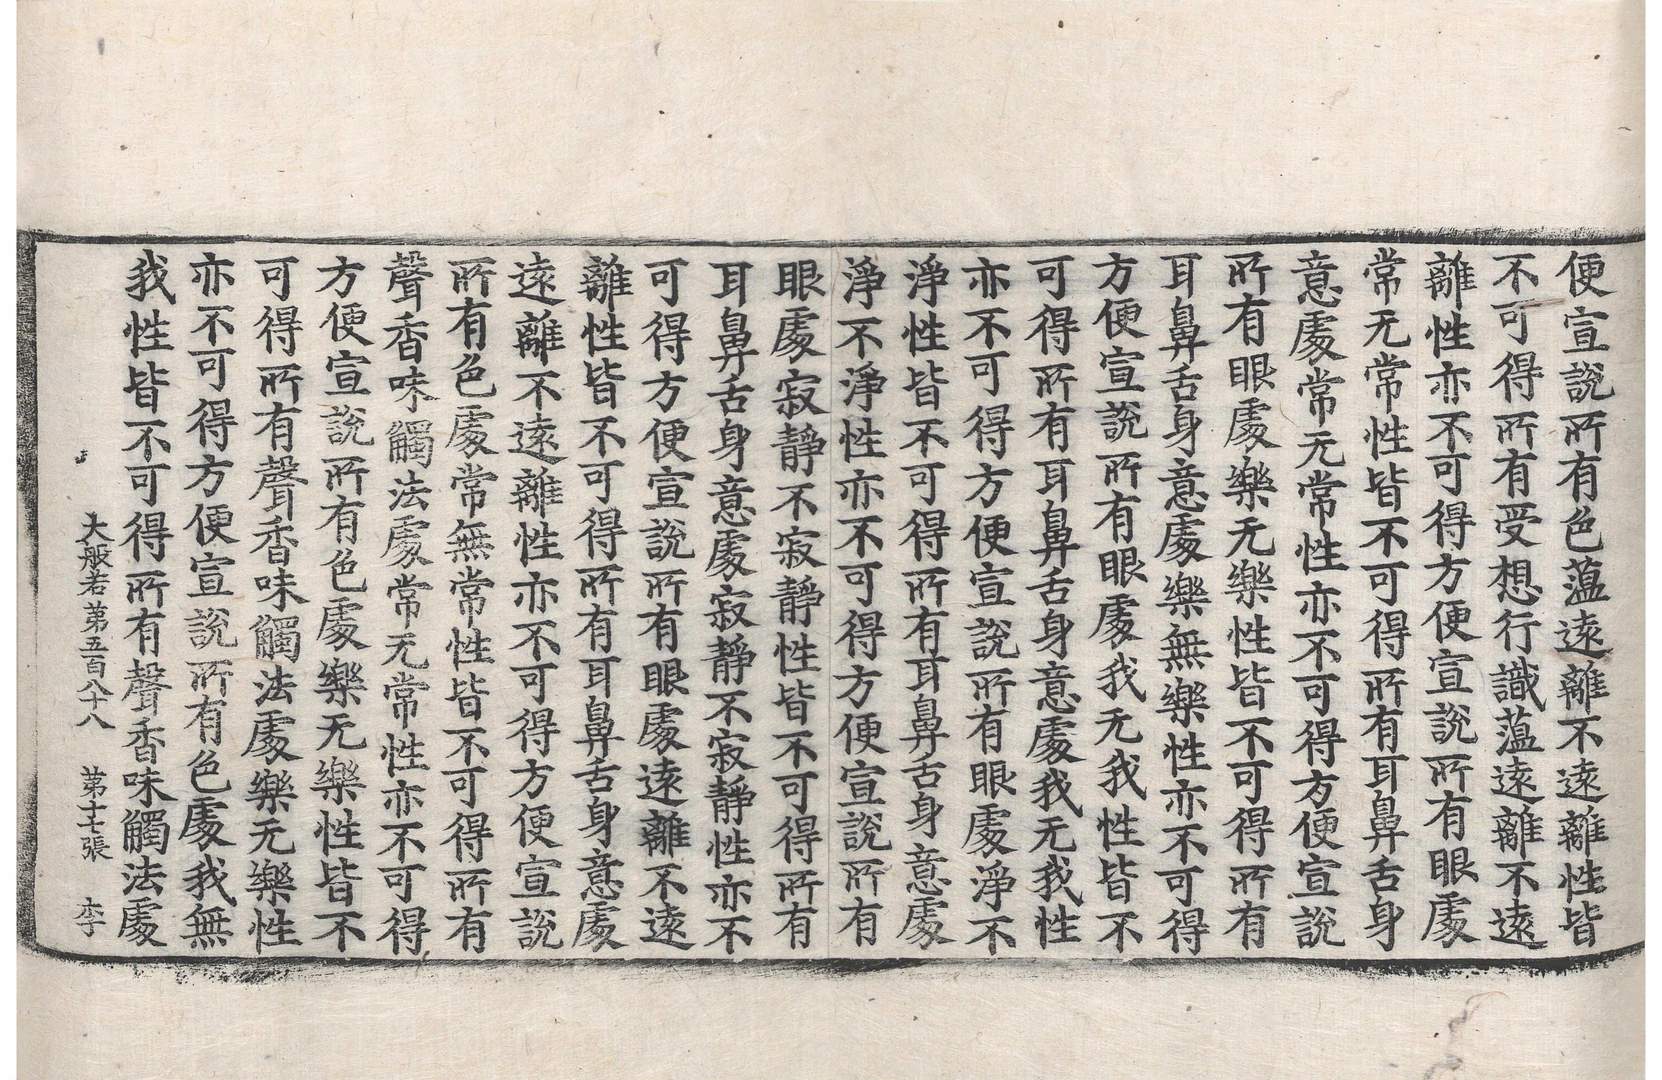 便宣說所有色蘊遠離不遠離性皆
不可得所有受想行識蘊遠離不遠
離性亦不可得方便宣說所有眼處
常无常性皆不可得所有耳鼻舌身
意處常无常性亦不可得方便宣說
所有眼處樂无樂性皆不可得所有
耳鼻舌身意處樂無樂性亦不可得
方便宣說所有眼處我无我性皆不
可得所有耳鼻舌身意處我无我性
亦不可得方便宣說所有眼處淨不
淨性皆不可得所有耳鼻舌身意處
淨不淨性亦不可得方便宣說所有
眼處寂靜不寂靜性皆不可得所有
耳鼻舌身意處寂靜不寂靜性亦不
可得方便宣說所有眼處遠離不遠
離性皆不可得所有耳鼻舌身意處
遠離不遠離性亦不可得方便宣說
所有色處常無常性皆不可得所有
聲香味觸法處常无常性亦不可得
方便宣說所有色處樂无樂性皆不
可得所有聲香味觸法處樂无樂性
亦不可得方便宣說所有色處我無
我性皆不可得所有聲香味觸法處
大般若第五百八十八 第十七張 李